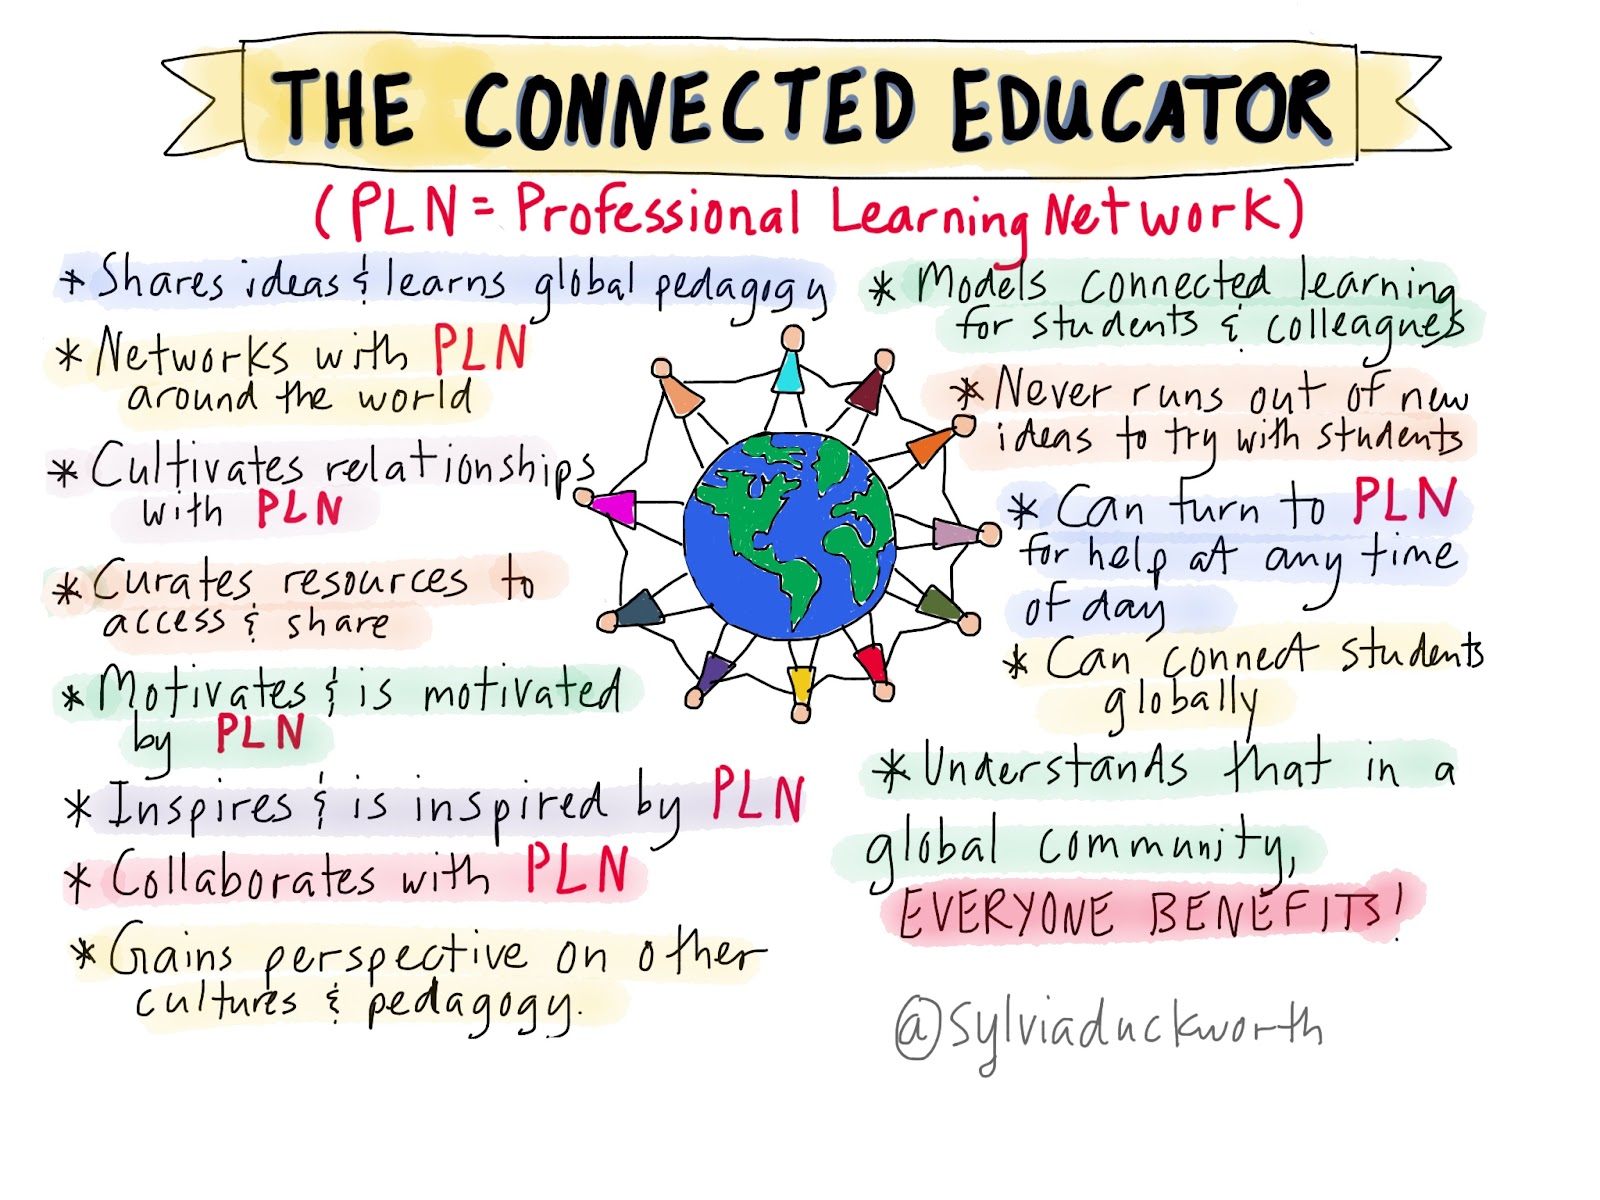 THE CONNECTED EDUCATOR
(PLN = Professional Learning Network)
* Shares ideas & learns global pedagogy
* Networks with PLN
around the world
* Cultivates relationships
with PLN
* Curates resources to
access & share
* Motivates & is motivated
by PLN
* Inspires & is inspired by PLN
* Collaborates with PLN
* Gains perspective on other
cultures & pedagogy.
* Models connected learning
for students & colleagues
* Never runs out of new
ideas to try with students
* Can turn to PLN
for help at any time
of day
* Can connect students
globally
* Understands that in a
global community,
EVERYONE BENEFITS!
@sylviaduckworth